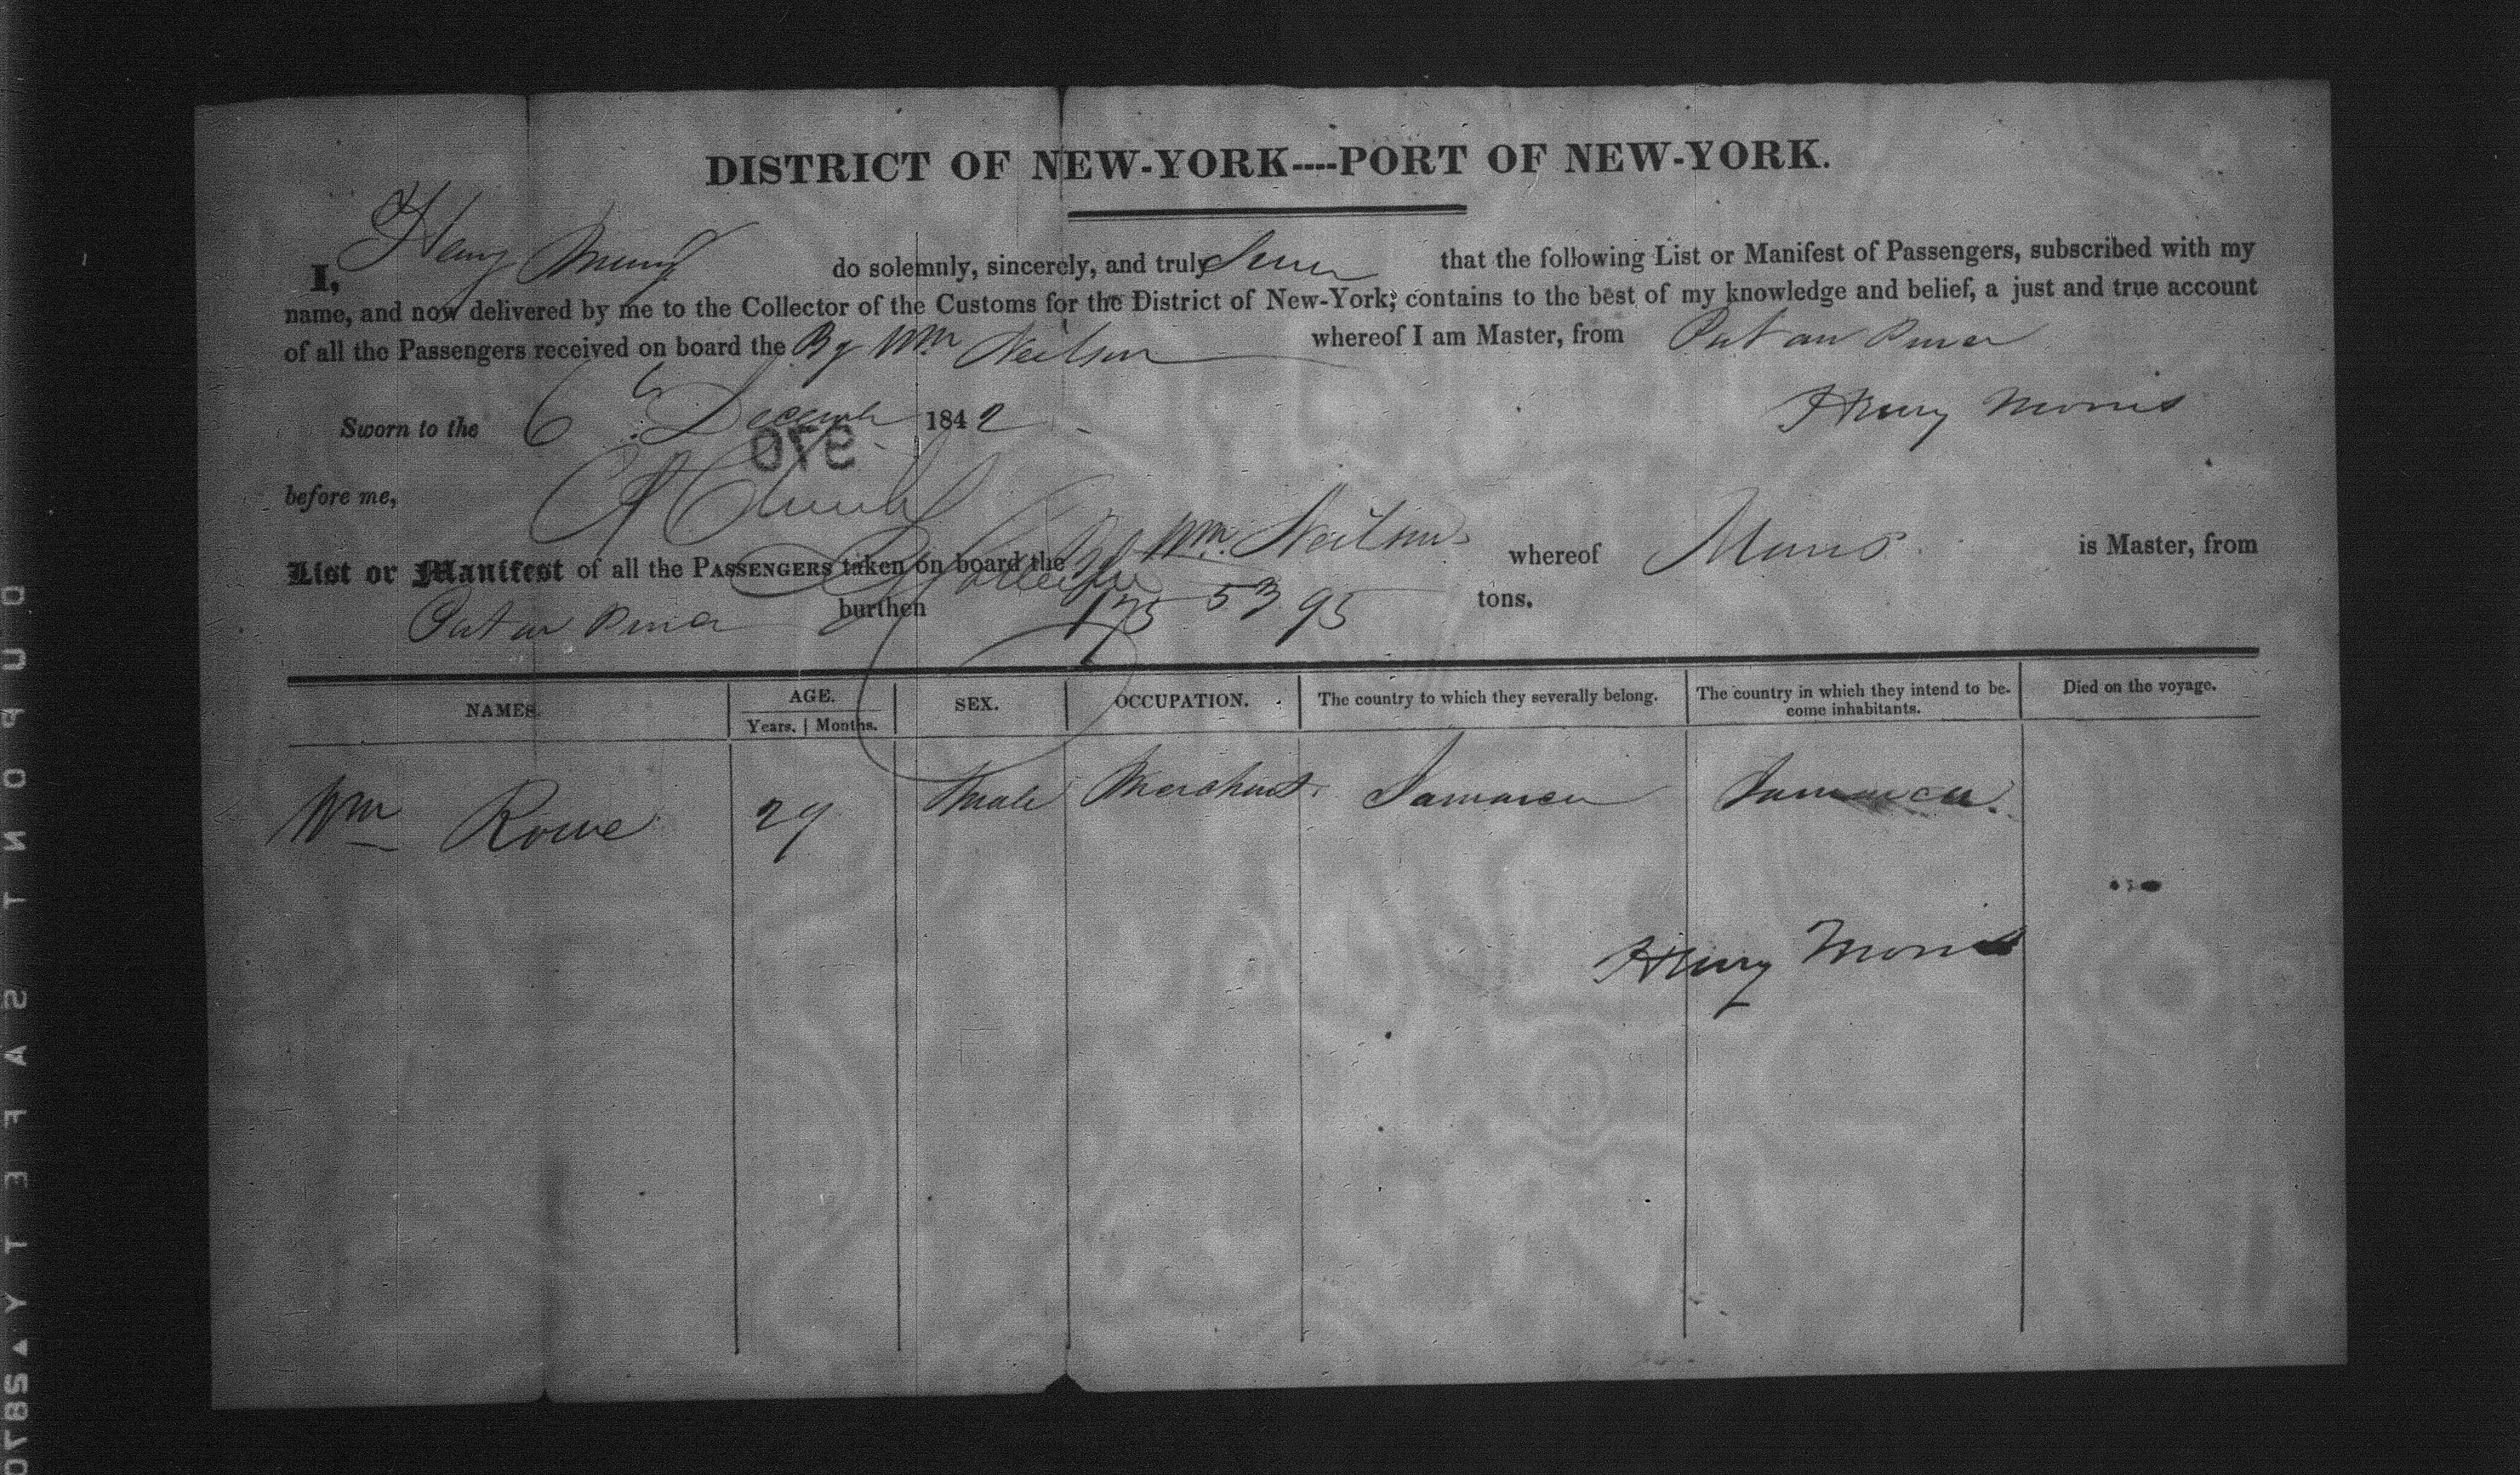 DISTRICT OF NEW-YORK----PORT OF NEW-YORK.
I, Henry Morris do solemnly, sincerely, and truly swear that the following List or Manifest of Passengers, subscribed with my
name, and now delivered by me to the Collector of the Customs for the District of New-York; contains to the best of my knowledge and belief, a just and true account
of all the Passengers received on board the Bg Wm Neilson whereof I am Master, from Port au Prince
Sworn to the 6th Decemb 1842
Henry Morris
570
before me,
List or Manifest of all the PASSENGERS taken on board the Bg Wm. Neilson whereof Morris is Master, from
Port au Prince burthen 175 53 95 tons.
NAMES. AGE. SEX. OCCUPATION. The country to which they severally belong. The country in which they intend to be- Died on the voyage.
Years. | Months. come inhabitants.
Wm Rowe 29 Male Merchant. Jamaica Jamaica.
Henry Morris
DUPONT SAFETY▲S870